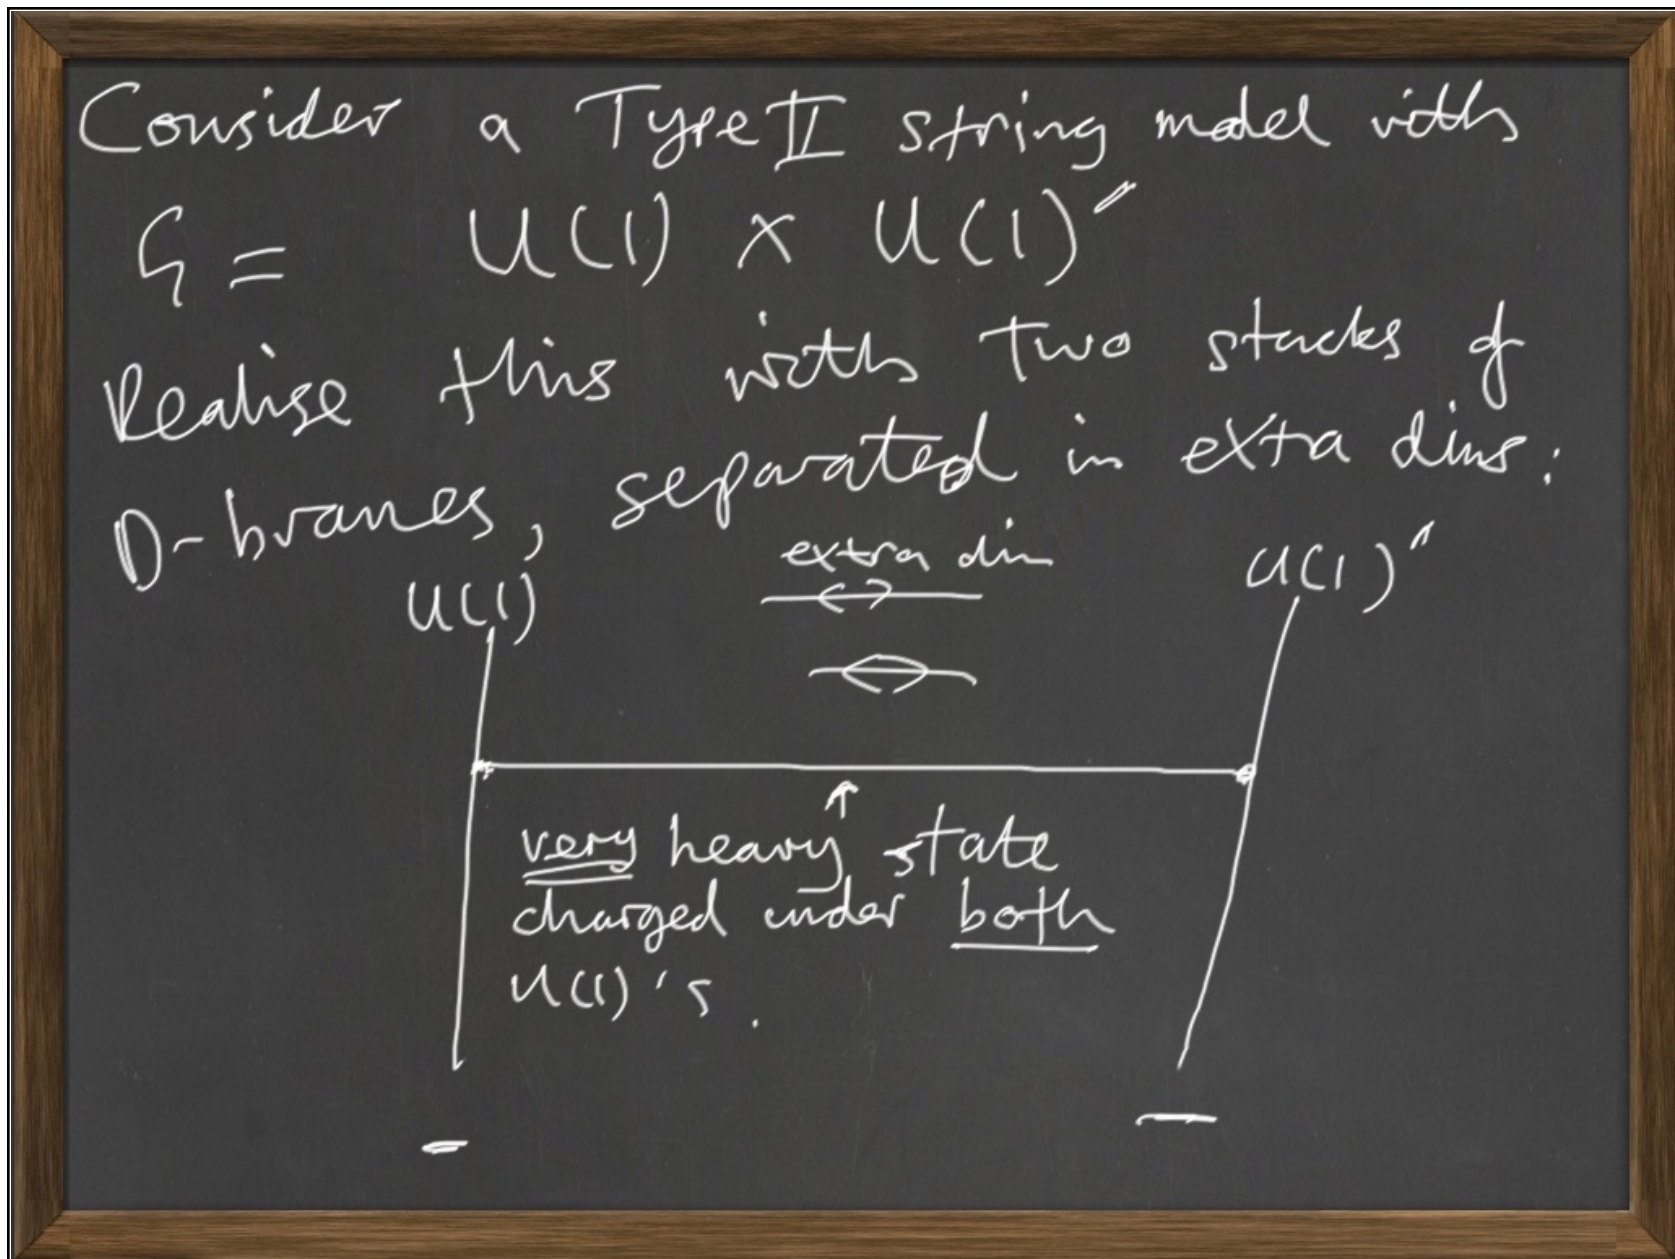 Consider a Type II string model with
G = U(1) × U(1)'
Realise this with two stacks of
D-branes, separated in extra dims:
extra dim
U(1)
U(1)'
very heavy state
charged under both
U(1)'s.